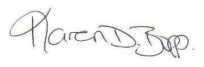 Karen D. Bopp.